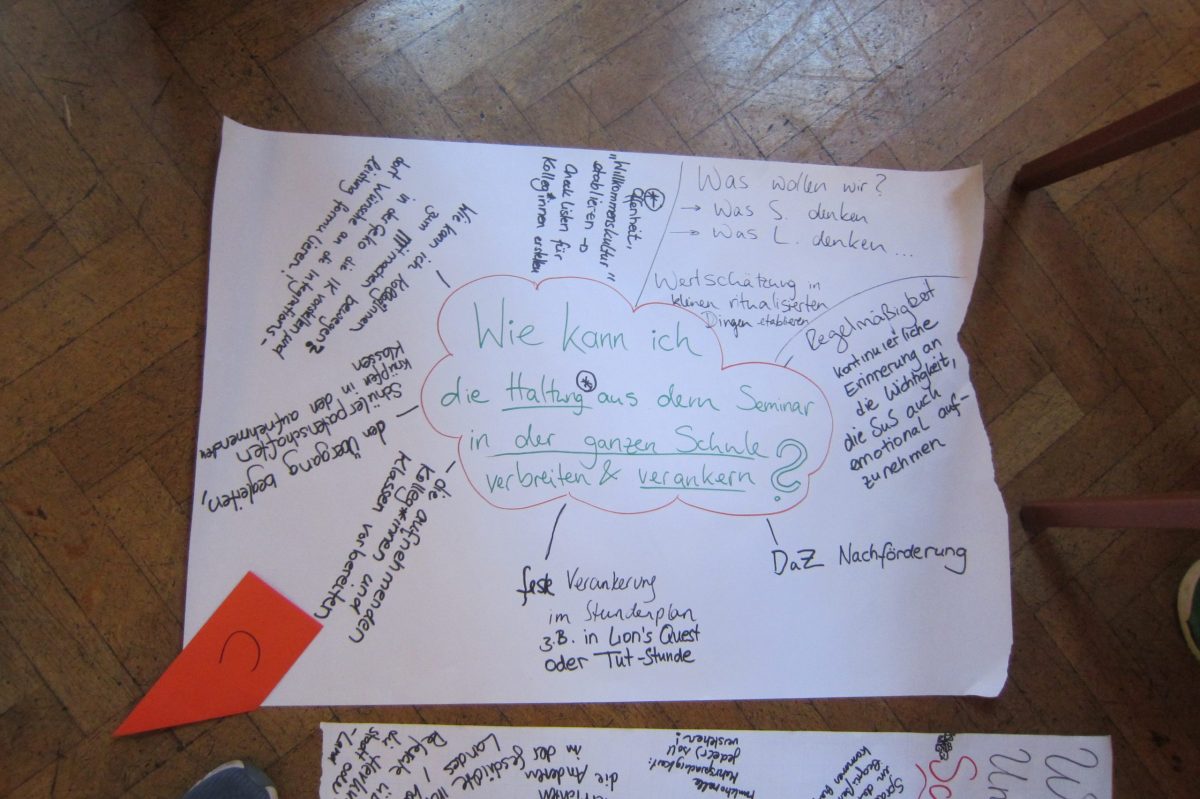 Wie kann ich
die Haltung * aus dem Seminar
in der ganzen Schule
verbreiten & verankern ?
Was wollen wir?
→ Was S. denken
→ Was L. denken...
Wertschätzung in
kleinen ritualisierten
Dingen etablieren
Regelmäßigket
kontinuierliche
Erinnerung an
die Wichtigkeit,
die SuS auch
emotional auf-
zunehmen
DaZ Nachförderung
feste Verankerung
im Stundenplan
z.B. in Lion's Quest
oder Tut-Stunde
- die aufnehmenden
Kolleg*innen und
Klassen vorbereiten
den Übergang begleiten,
Schülerpatenschaften
knüpfen in den aufnehmenden
Klassen
Wie kann ich KollegInnen
zum Mitmachen bewegen?
in der GeKo die IK vorstellen und
dort Wünsche an die Integrations-
leitung formulieren!
*
Offenheit,
"Willkommenskultur"
etablieren →
Checklisten für
Kolleg*innen erstellen
C
die Anderen
in der Geschichte
Landes
jede(r) soll
verstehen!